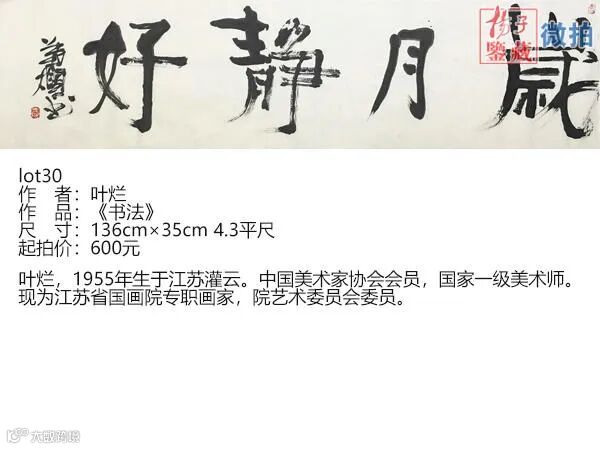 歲月靜好
揚子
鑒藏
微拍
lot30
作 者：叶烂
作 品：《书法》
尺 寸：136cm×35cm 4.3平尺
起拍价：600元
叶烂，1955年生于江苏灌云。中国美术家协会会员，国家一级美术师。
现为江苏省国画院专职画家，院艺术委员会委员。
大威跨境